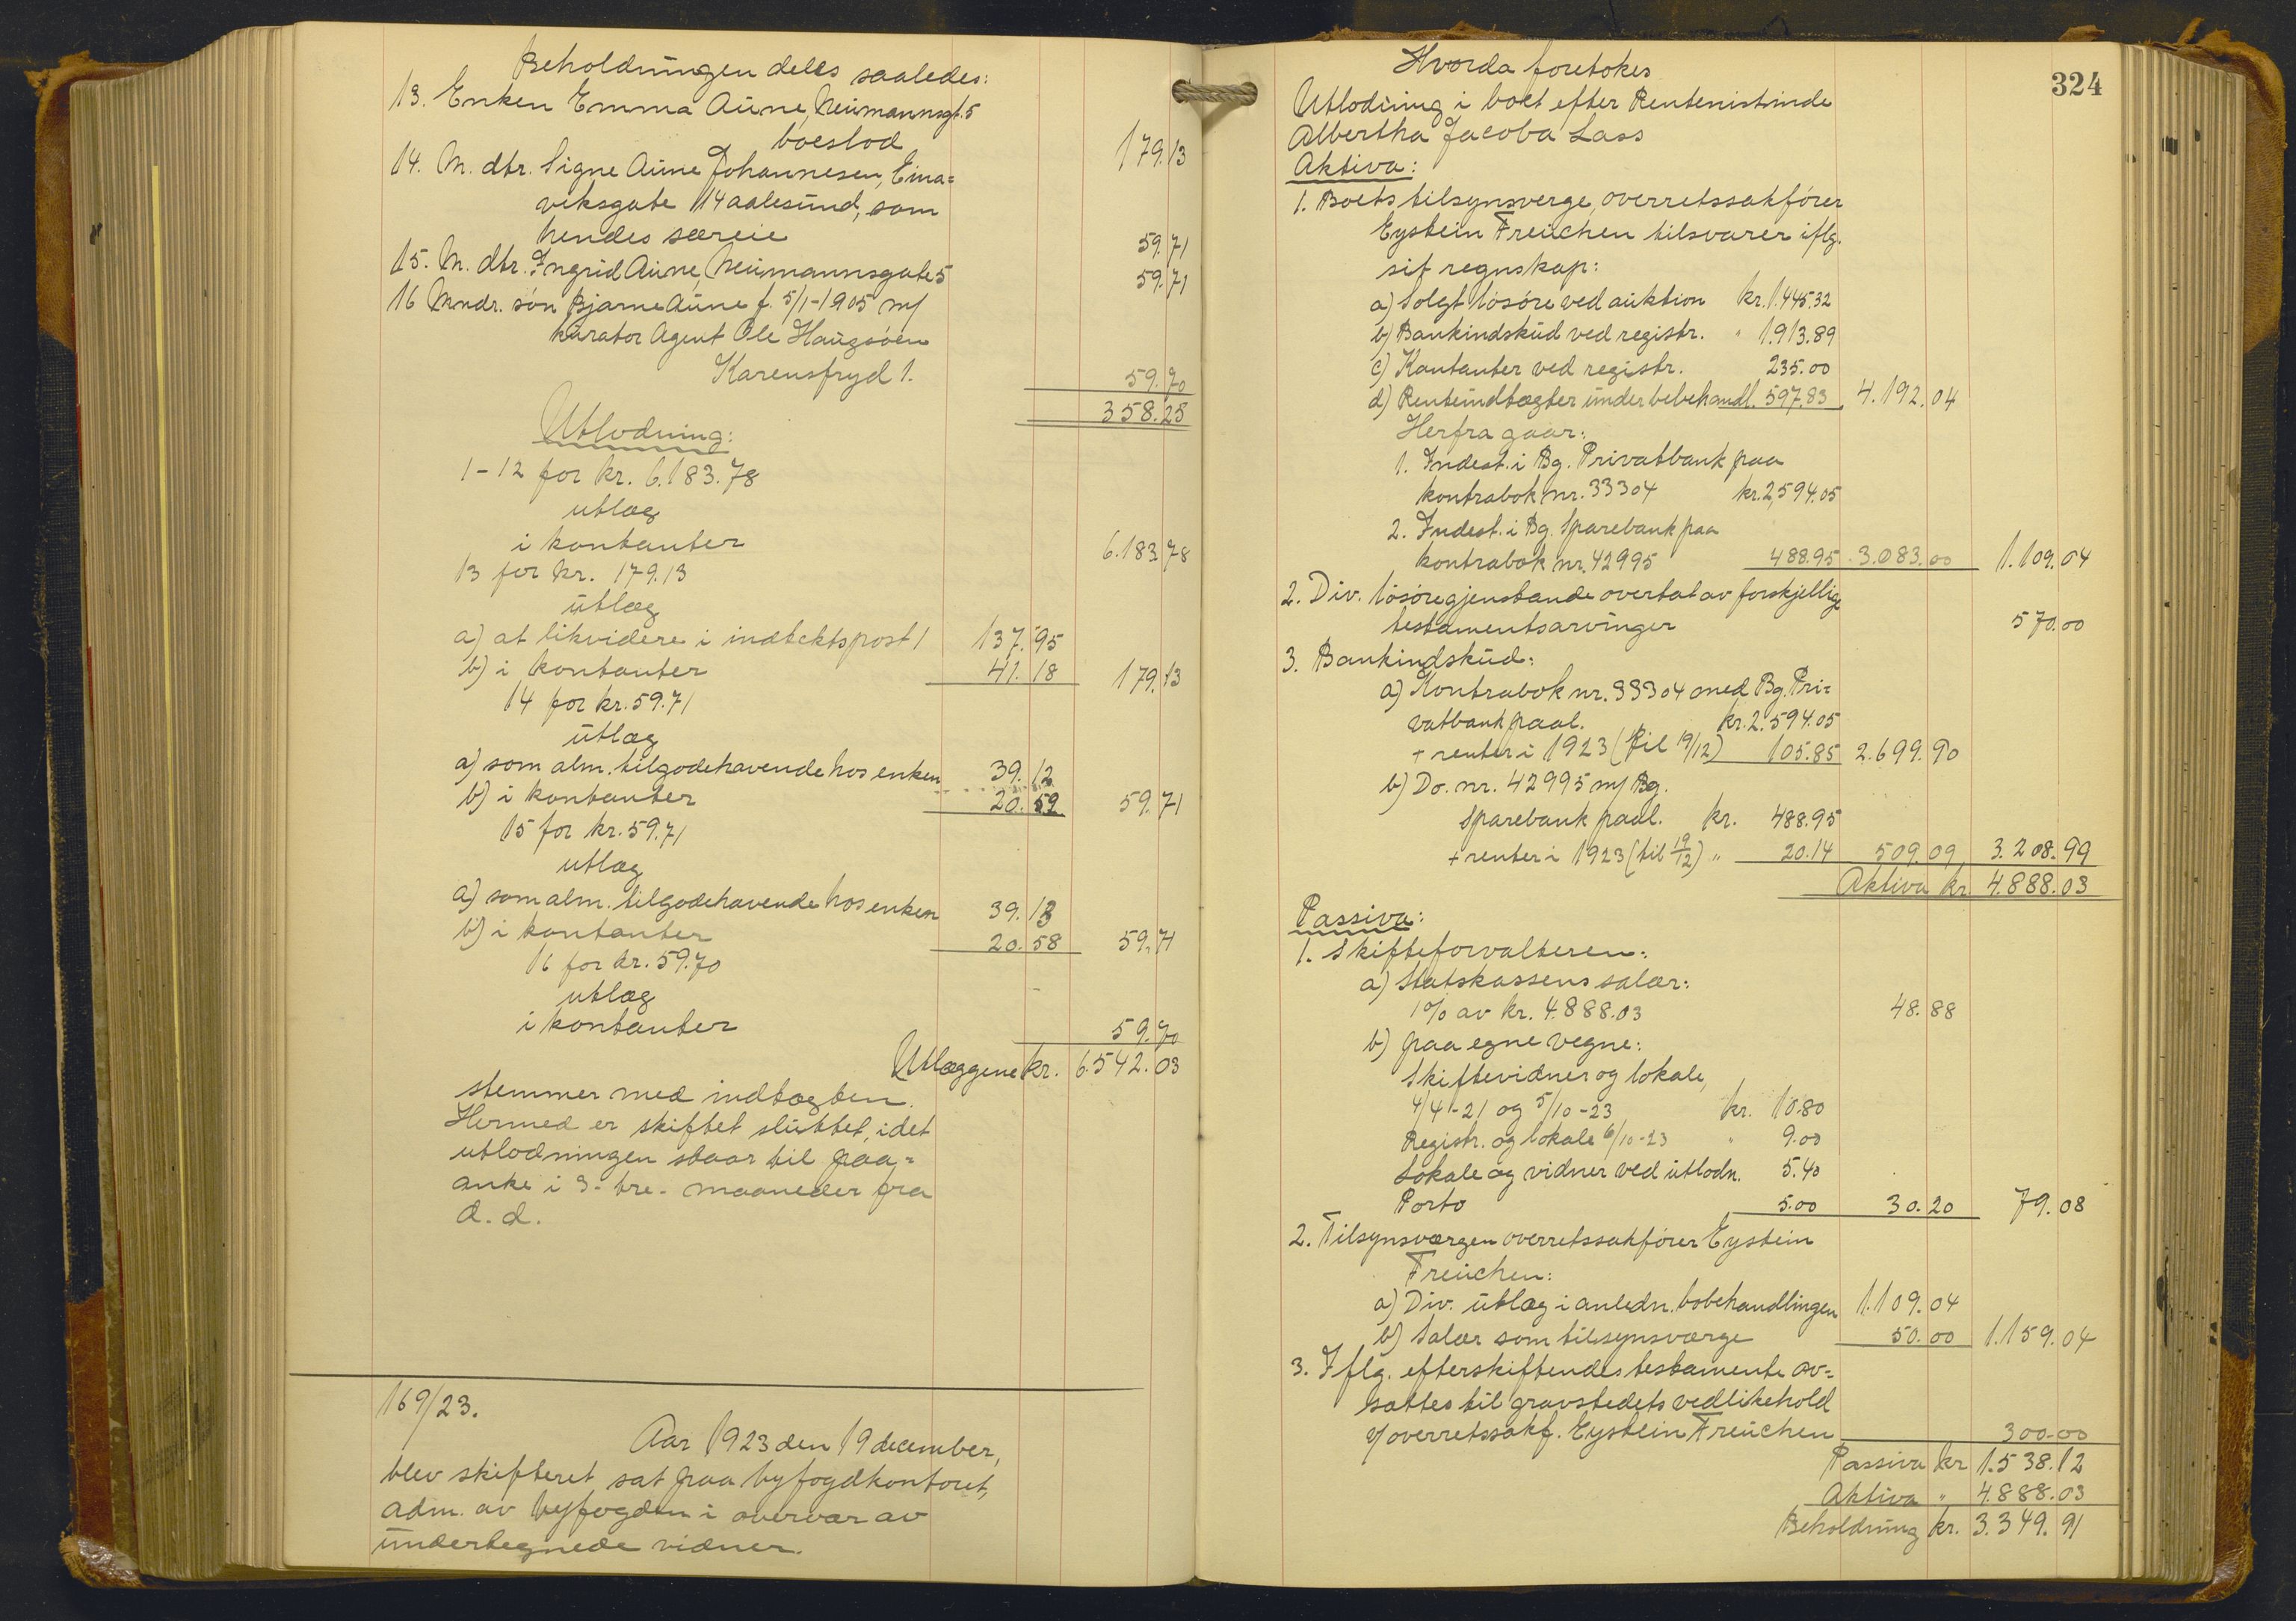 Beholdningen deles saaledes:
13. Enken Emma Aune, Neumannsgt. 5
boeslod 179.13
14. M. dtr. Signe Aune Johannesen, Eina=
viksgate 14 aalesund, som
hendes særeie 59.71
15. M. dtr. Ingrid Aune, Neumannsgate 5 59.71
16 Mndr. søn Bjarne Aune f. 5/1-1905 m/
kurator Agent Ole Haugsöen
Karensfryd 1. 59.70
358.25
Utlodning:
1-12 for kr. 6.183.78
utlæg
i kontanter 6.183.78
13 for kr. 179.13
utlæg
a) at likvidere i indtektspost 1 137.95
b) i kontanter 41.18 179.13
14 for kr. 59.71
utlæg
a) som alm. tilgodehavende hos enken 39.12
b) i kontanter 20.59 59.71
15 for kr. 59.71
utlæg
a) som alm. tilgodehavende hos enken 39.13
b) i kontanter 20.58 59.71
16 for kr. 59.70
utlæg
i kontanter 59.70
Utlæggene kr. 6.542.03
stemmer med indtægten.
Hermed er skiftet sluttet, idet
utlodningen staar til paa=
anke i 3- tre- maaneder fra
d. d.
169/23.
Aar 1923 den 19 december,
blev skifteret sat paa byfogdkontoret,
adm. av byfogden i overvær av
undertegnede vidner.
324
Hvorda foretokes
Utlodning i boet efter Rentenistinde
Albertha Jacoba Lass
Aktiva:
1. Boets tilsynsverge, overretssakfører
Eystein Freuchen tilsvarer iflg.
sit regnskap:
a) Solgt løsøre ved auktion kr. 1.445.32
b) Bankindskud ved registr. " 1.913.89
c) Kontanter ved registr. 235.00
d) Renteindtægter under bobehandl. 597.83 4.192.04
Herfra gaar:
1. Indest. i Bg. Privatbank paa
kontrabok nr. 33304 kr. 2,594.05
2. Indest. i Bg. Sparebank paa
kontrabok nr. 42995 488.95 3.083.00 1.109.04
2. Div. løsøregjenstande overtat av forskjellige
testamentsarvinger 570.00
3. Bankindskud:
a) Kontrabok nr. 33304 med Bg. Pri=
vatbank paal. kr. 2.594.05
+ renter i 1923 (til 19/12) 105.85 2.699.90
b) Do. nr. 42995 m/ Bg.
Sparebank paal. kr. 488.95
+ renter i 1923 (til 19/12) " 20.14 509.09 3.208.99
Aktiva kr. 4.888.03
Passiva:
1. Skifteforvalteren:
a) Statskassens salær:
1% av kr. 4.888.03 48.88
b) paa egne vegne:
Skiftevidner og lokale,
4/4-21 og 5/10-23 kr. 10.80
Registr. og lokale 6/10-23 " 9.00
Lokale og vidner ved utlodn. 5.40
Porto 5.00 30.20 79.08
2. Tilsynsværgen overretssakfører Eystein
Freuchen:
a) Div. utlæg i anledn. bobehandlingen 1.109.04
b) Salær som tilsynsværge 50.00 1.159.04
3. Iflg. efterskiftendes testamente av=
sattes til gravstedets vedlikehold
v/ overretssakf. Eystein Freuchen 300.00
Passiva kr 1.538.12
Aktiva " 4.888.03
Beholdning kr. 3.349.91